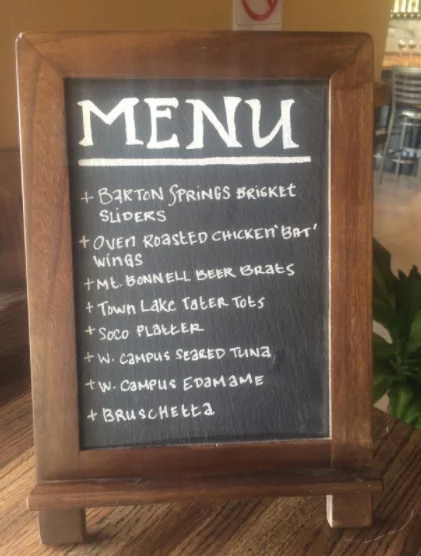 MENU
+ BARTON SPRINGS BRISKET
SLIDERS
+ OVEN ROASTED CHICKEN 'BAT'
WINGS
+ Mt. BONNELL BEER BRATS
+ TOWN LAKE TATER TOTS
+ SOCO PLATTER
+ W. CAMPUS SEARED TUNA
+ W. CAMPUS EDAMAME
+ BRUSCHETTA